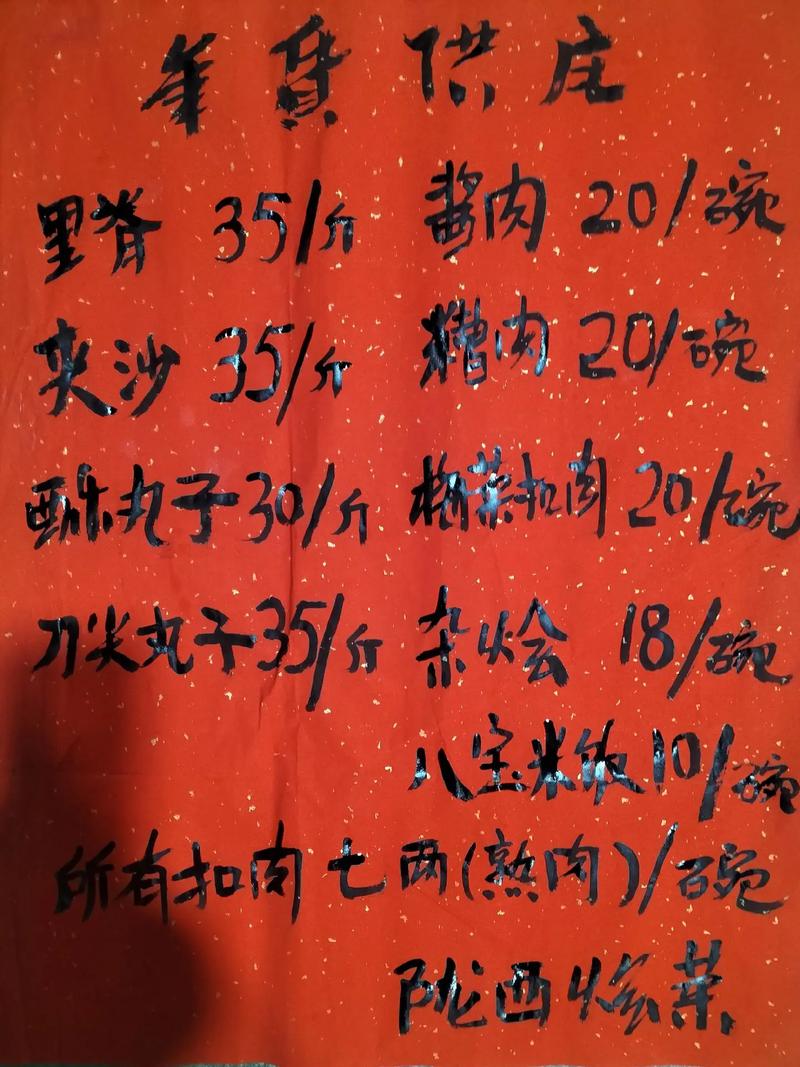 年货供应
里脊 35/斤 酱肉 20/碗
夹沙 35/斤 糟肉 20/碗
酥肉丸子 30/斤 梅菜扣肉 20/碗
刀尖丸子 35/斤 杂烩 18/碗
八宝米饭 10/碗
所有扣肉七两(熟肉)/碗
陇西烩菜